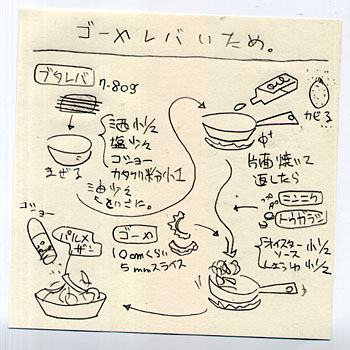 ゴーヤレバいため。
ブタレバ
7-80g
酒小1/2
塩少々
コショー
カタクリ粉小1
まぜる
油少々
さいごに。
かぜる
中
片面焼いて
返したら
ニンニク
トウガラシ
オイスター小1/2
ソース
しょうゆ小1/2
ゴーヤ
10cmくらい
5mmスライス
コショー
パルメ
ザン